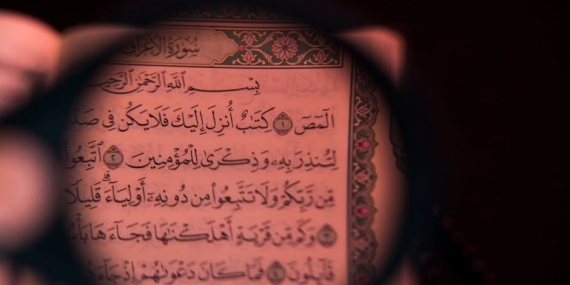 سُورَةُ الأَعْرَافِ
بِسْمِ اللَّهِ الرَّحْمَٰنِ الرَّحِيمِ
الٓمٓصٓ ١ كِتَٰبٌ أُنزِلَ إِلَيْكَ فَلَا يَكُن فِى
لِتُنذِرَ بِهِۦ وَذِكْرَىٰ لِلْمُؤْمِنِينَ ٢ ٱتَّبِعُوا۟
مِّن رَّبِّكُمْ وَلَا تَتَّبِعُوا۟ مِن دُونِهِۦٓ أَوْلِيَآءَ قَلِيلًا
٣ وَكَم مِّن قَرْيَةٍ أَهْلَكْنَٰهَا فَجَآءَهَا
قَآئِلُونَ ٤ فَمَا كَانَ دَعْوَىٰهُمْ إِذْ جَآءَ